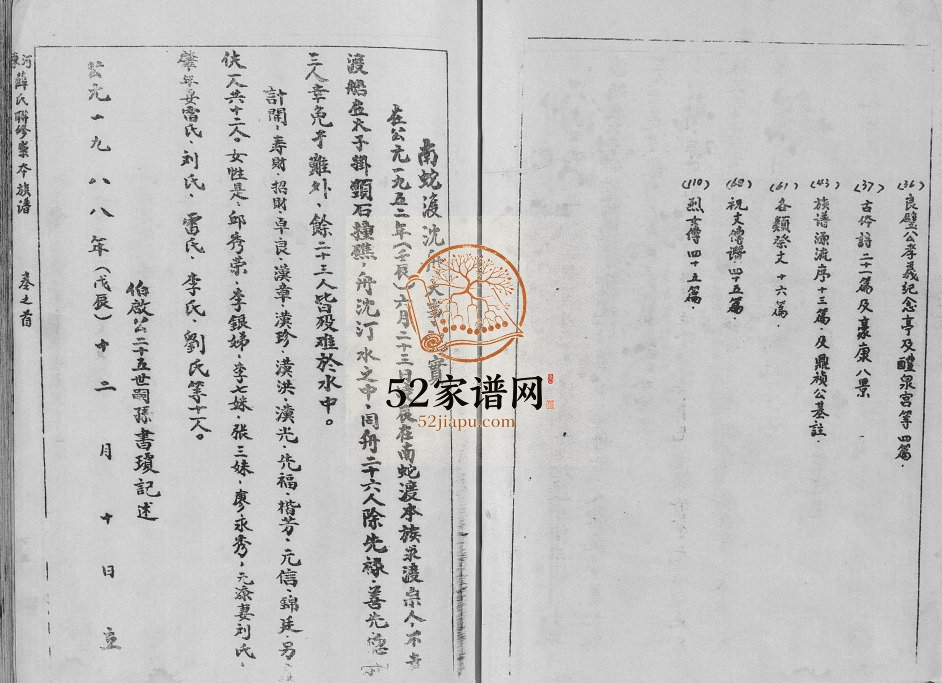 (36) 良璧公孝義纪念亭及醴泉宮等四篇.
(37) 古今詩二十一篇及豪康八景
(43) 族譜源流序十三篇.及鼎禎公墓註.
(61) 各類祭文十六篇.
(68) 祝文傳讚四十五篇.
(110) 烈女傳四十五篇.
南蛇渡沈舟大事 實
在公元一九五二年(壬辰)六月二十三日 辰在南蛇渡本族眾渡宗人,不幸
渡船在大子掛頸石撞礁,舟沈汀水之中,同舟二十六人除先祿、善先
三人幸免于難外,餘二十三人皆歿难於水中。
計開、寿財、招財、卓良、漢章、漢珍、漢洪、漢光、先福、楷芳、元信、錦廷、另
伕一人共十二人。女性是、邱秀荣、李銀娣、李七妹、张三妹、廖永秀,元添妻刘氏、
肇年妻雷氏、刘氏、雷氏、李氏、劉氏等十一人。
伯啟公二十五世嗣孫書瓊記述
公元一九八八年(戊辰)十二月十日 立
河東薛氏聯修崇本族谱 卷之首
52家谱网
52jiapu.com